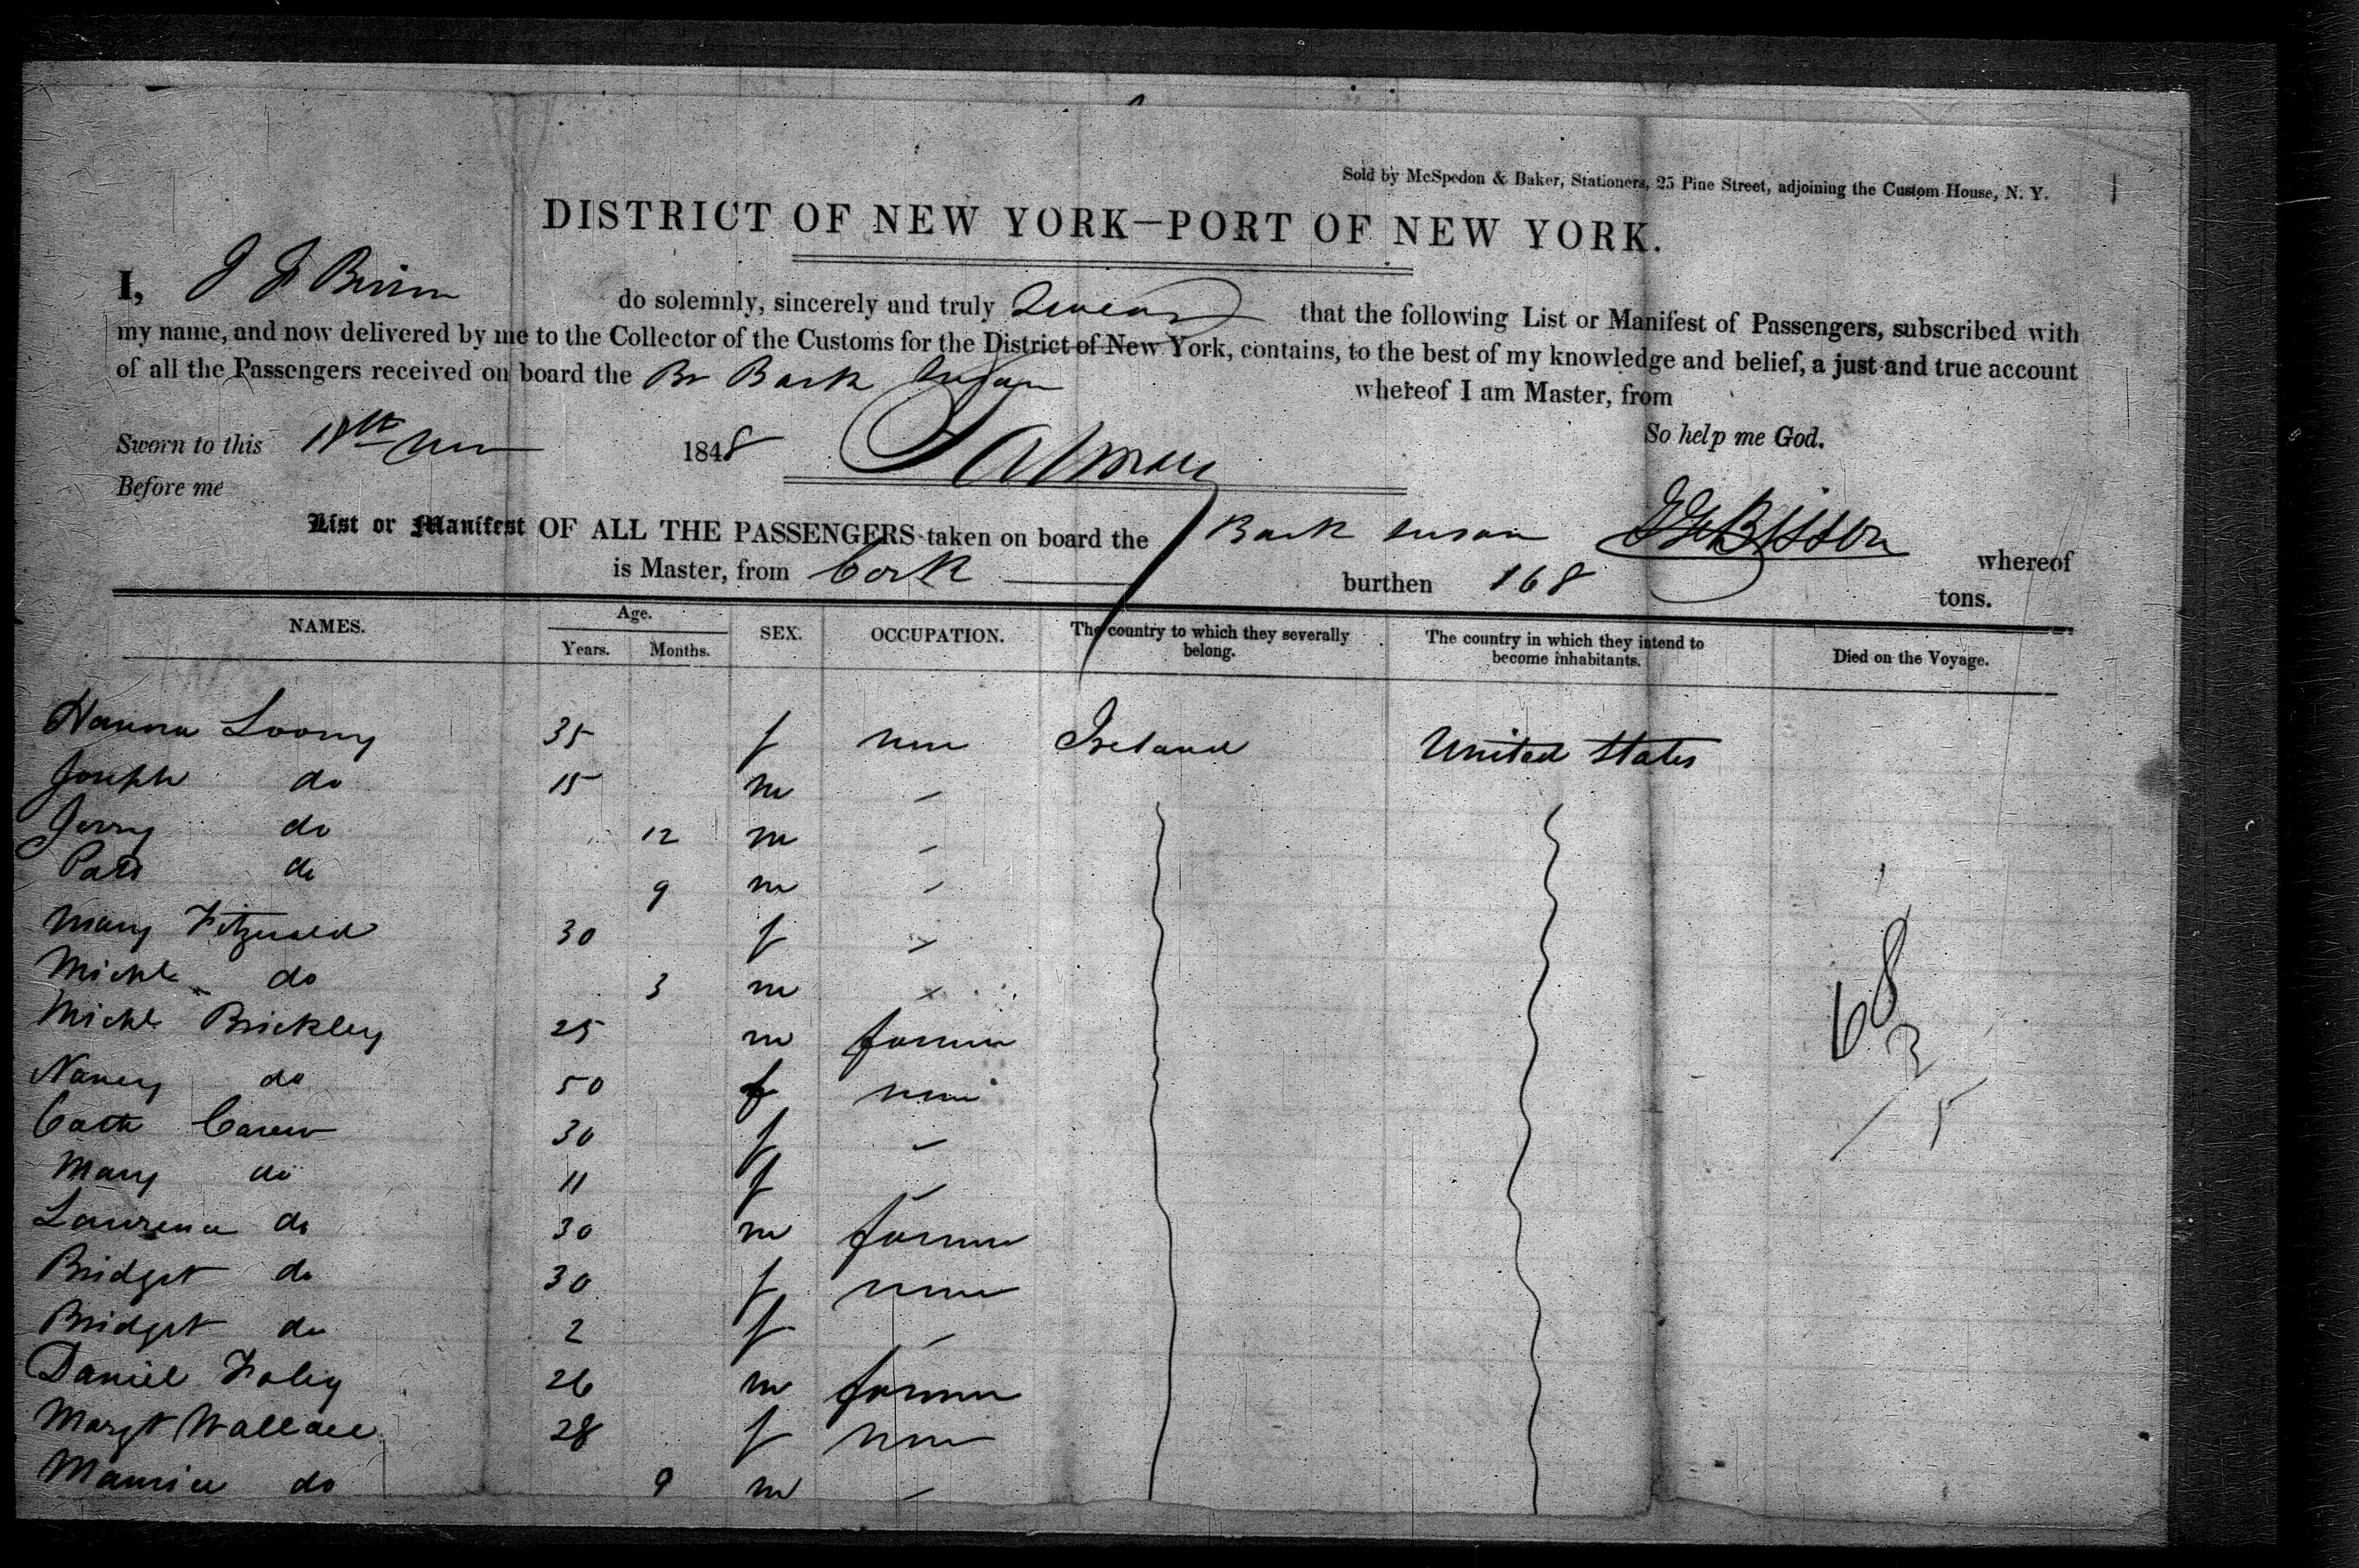 Sold by McSpedon & Baker, Stationers, 25 Pine Street, adjoining the Custom House, N. Y.
DISTRICT OF NEW YORK—PORT OF NEW YORK.
I, J J do solemnly, sincerely and truly Swear that the following List or Manifest of Passengers, subscribed with
my name, and now delivered by me to the Collector of the Customs for the District of New York, contains, to the best of my knowledge and belief, a just and true account
of all the Passengers received on board the Br Bark Susan whereof I am Master, from
So help me God.
Sworn to this 18th 1848
Before me
List or Manifest OF ALL THE PASSENGERS taken on board the Bark Susan whereof
is Master, from Cork burthen 168 tons.
NAMES. Age. SEX. OCCUPATION. The country to which they severally belong. The country in which they intend to become inhabitants. Died on the Voyage.
Years. Months.
Hanna Loony 35 f none Ireland United States
Joseph do 15 m
Jerry do 12 m
Patt do 9 m
Mary Fitzgerald 30 f
Michl do 3 m
Michl Brickley 25 m farmer
Nancy do 50 f none
Cath Carew 30 f
Mary do 11 f
Lawrence do 30 m farmer
Bridget do 30 f none
Bridget do 2 f
Daniel Foley 26 m farmer
Margt Wallace 28 f none
Maurice do 9 m
68
3
5